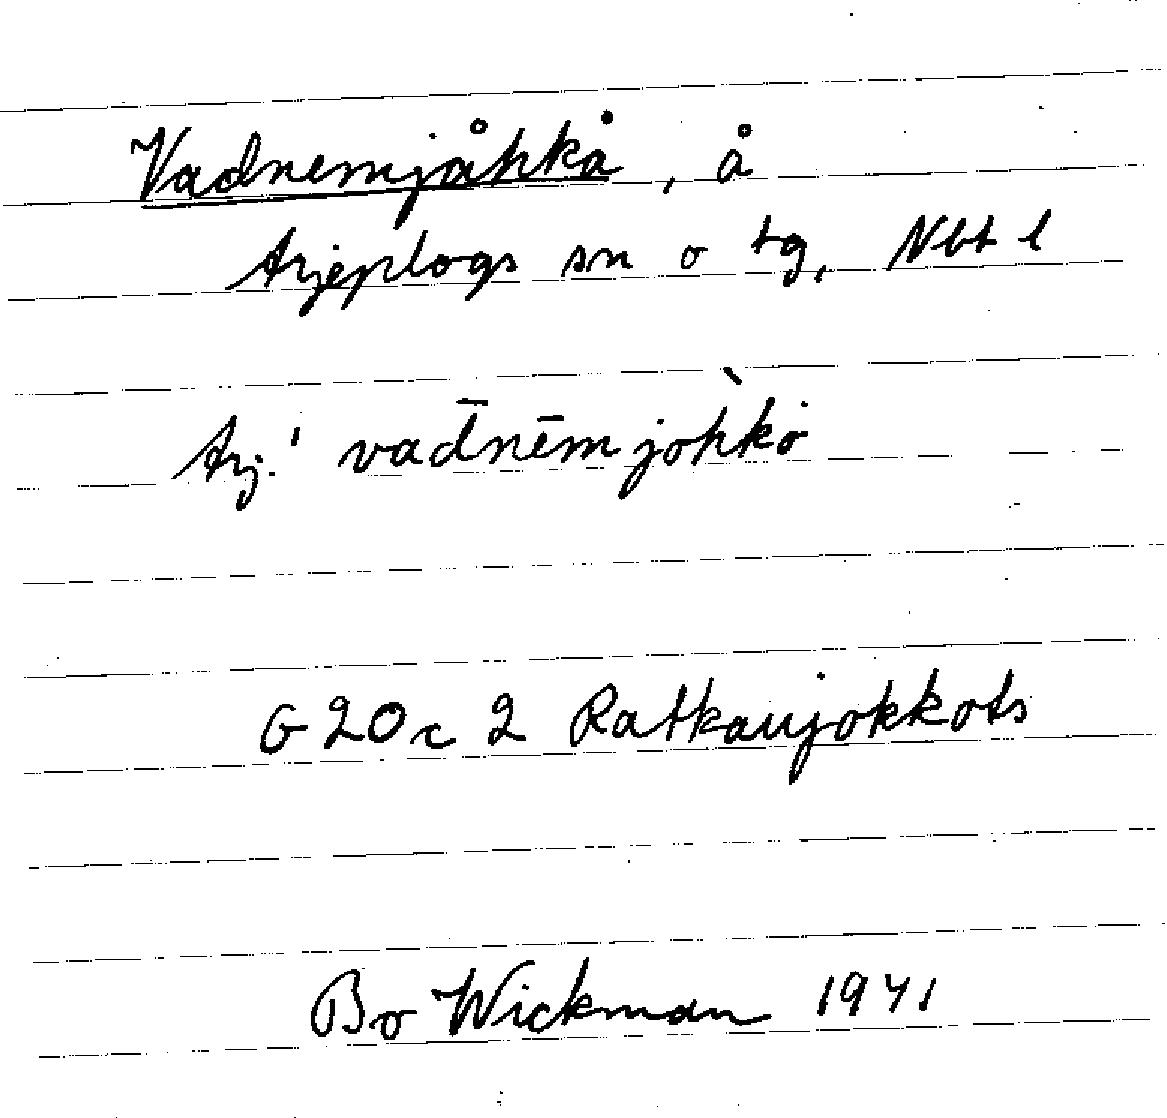 Vadnemjåhkå, å
Arjeplogs sn o tg, Nbt l
Arj.' vad̄nēmjoh̀kȯ
G 20 c 2 Ratkaujokkots
Bo Wickman 1941